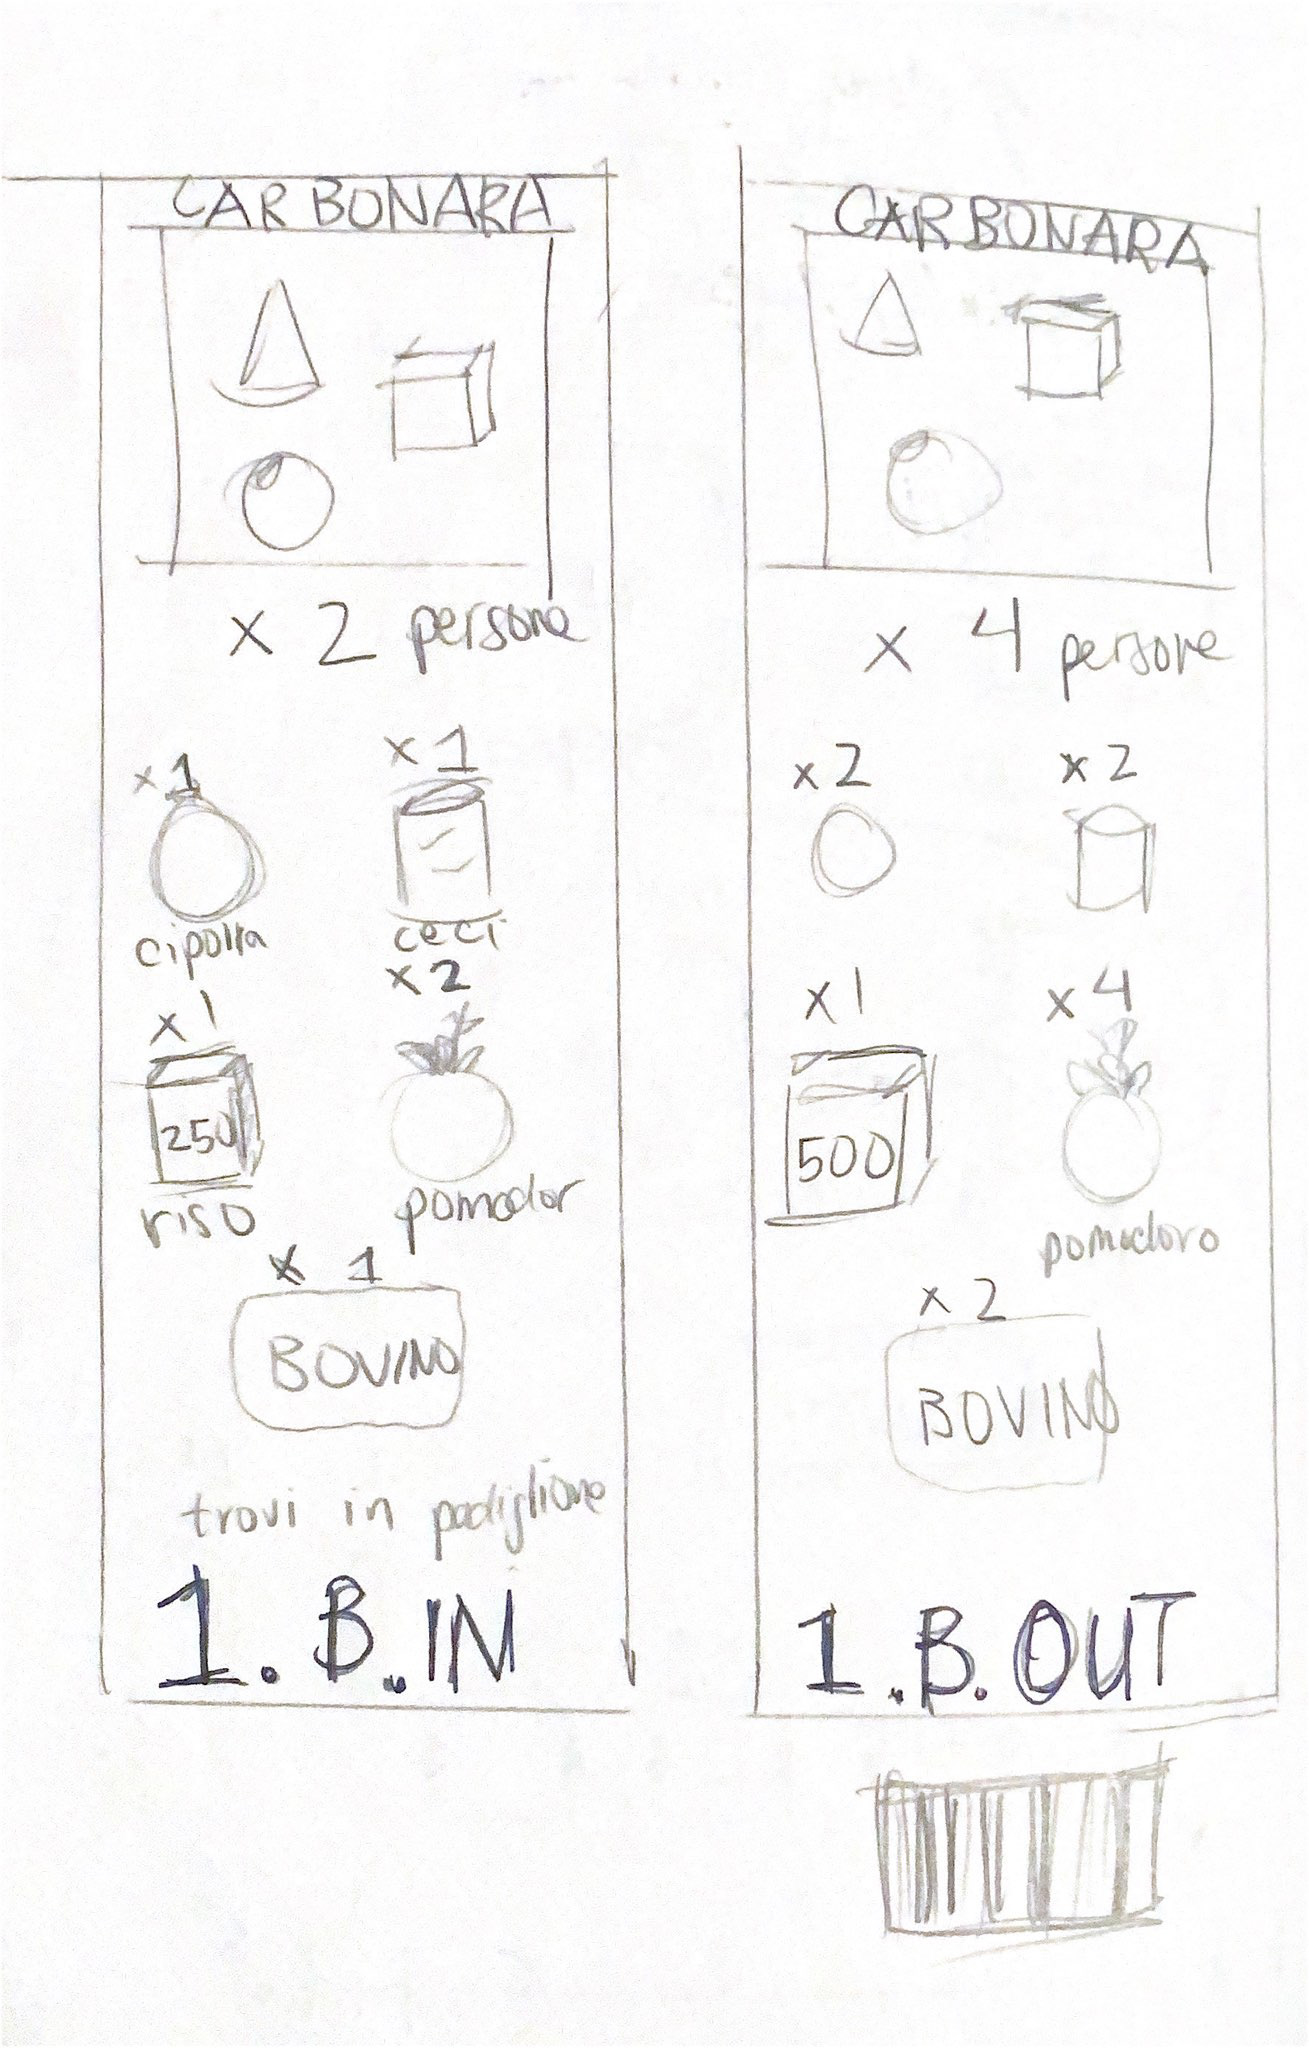 CARBONARA
x 2 persone
x 1
x 1
cipolla
ceci
x 1
x 2
250
riso
pomodor
x 1
BOVINO
trovi in padiglione
1. B. IN
CARBONARA
x 4 persone
x 2
x 2
x 1
x 4
500
pomodoro
x 2
BOVINO
1. B. OUT